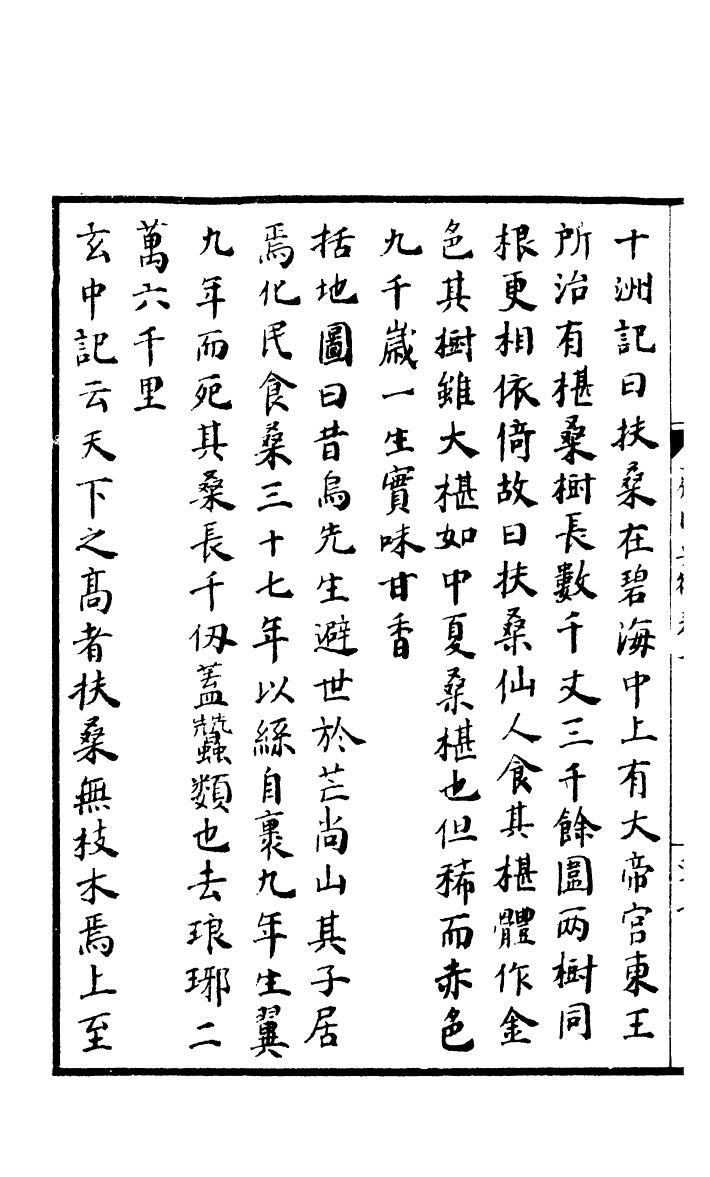 十洲記曰扶桑在碧海中上有大帝宫東王
所治有椹桑樹長數千丈三千餘圍兩樹同
根更相依倚故曰扶桑仙人食其椹體作金
色其樹雖大椹如中夏桑椹也但稀而赤色
九千嵗一生實味甘香
括地圖曰昔烏先生避世於芒尚山其子居
焉化民食桑三十七年以絲自裹九年生翼
九年而死其桑長千仭蓋蠶類也去琅琊二
萬六千里
玄中記云天下之髙者扶桑無枝木焉上至